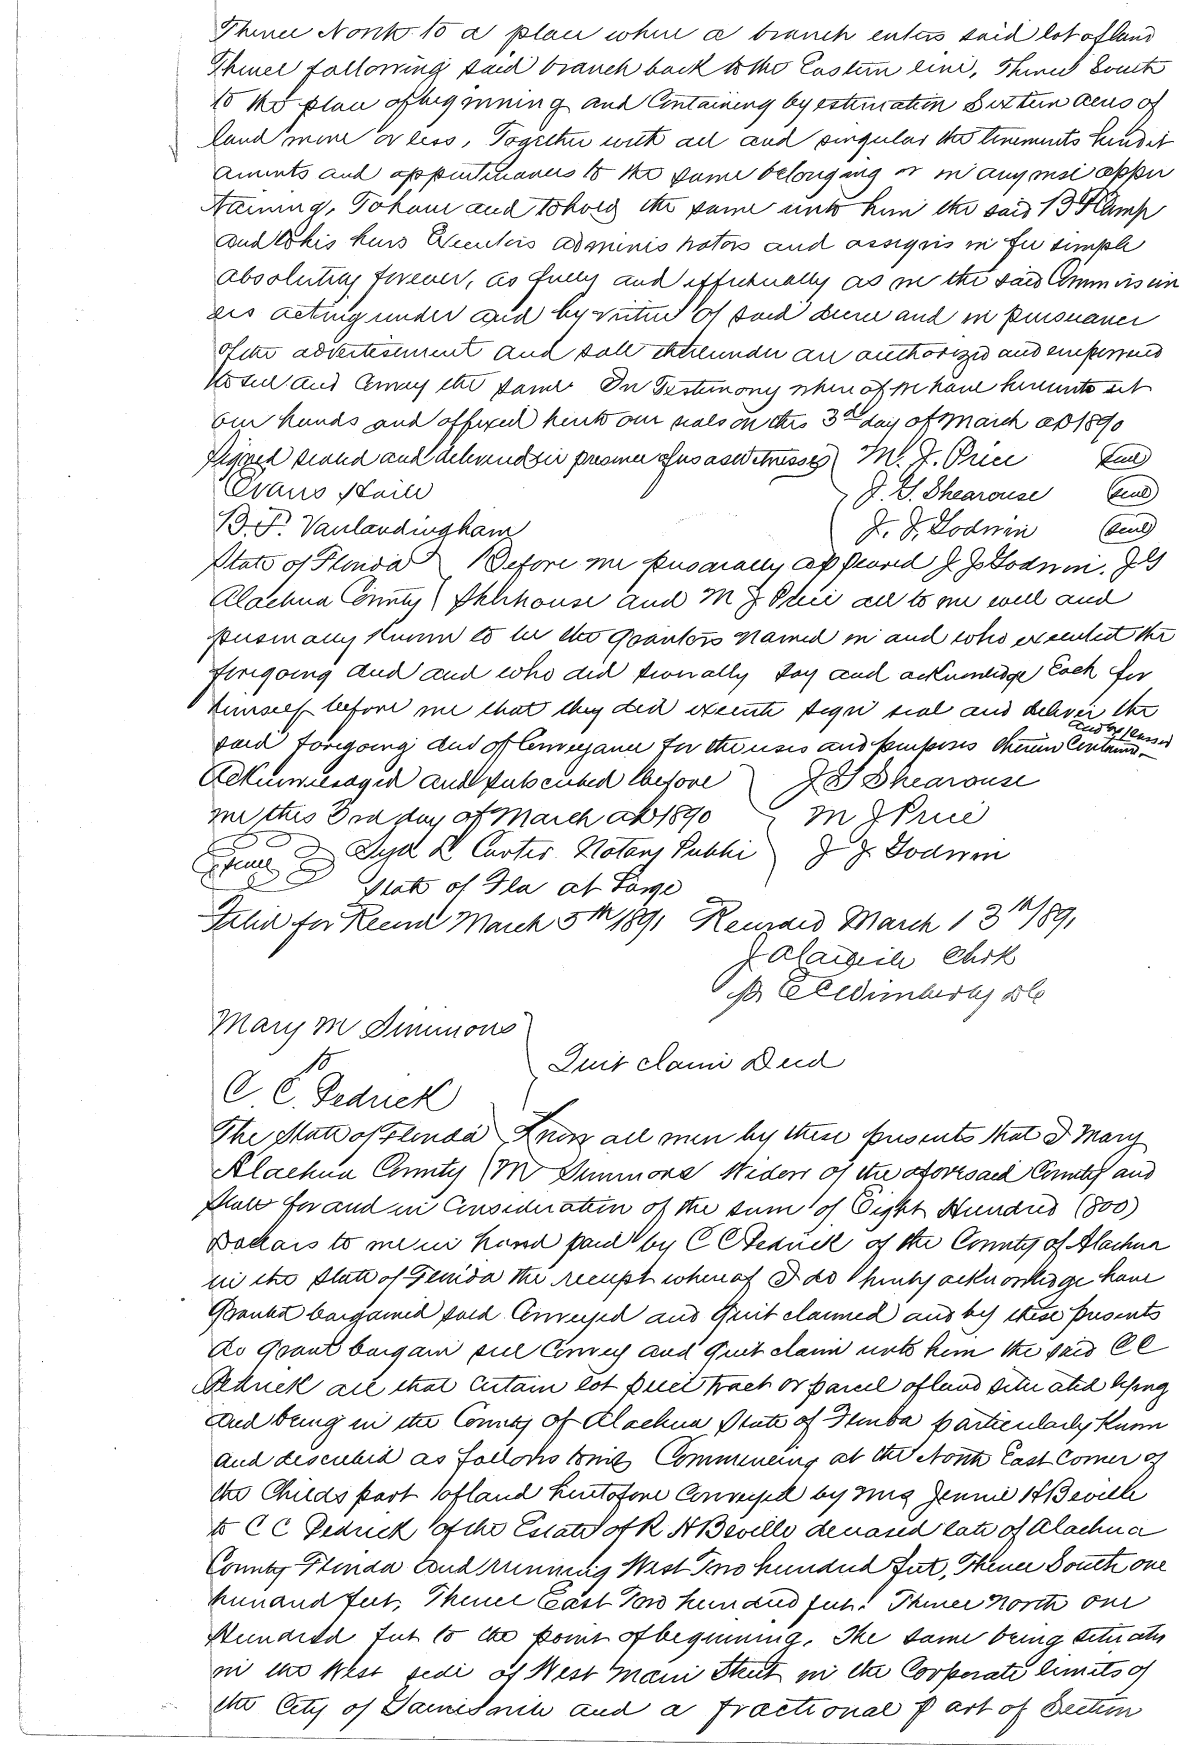 Thence North to a place where a branch enters said lot of land
Thence following said branch back to the Eastern line, Thence South
to the place of beginning and Containing by estimation Sixteen acres of
land more or less, Together with all and singular the tenements heredit
aments and appurtenances to the same belonging or in any wise apper
taining, To have and to hold the same unto him the said B F Camp
and to his heirs Executors administrators and assigns in fee simple
absolutely forever, as fully and effectually as we the said Commission
ers acting under and by virtue of said decree and in pursuance
of the advertisement and sale thereunder are authorized and empowered
to sell and convey the same In Testimony where of we have hereunto set
our hands and affixed hereto our seals on this 3rd day of March AD 1890
Signed sealed and delivered in presence of us as witnesses M. J. Price (Seal)
Evans Haile J. G. Shearouse (Seal)
B. P. Vanlandingham J. J. Godwin (Seal)
State of Florida Before me personally appeared J J Godwin. J G
Alachua County Shearouse and M J Price all to me well and
personally known to be the Grantors named in and who executed the
foregoing deed and who did severally say and acknowledge Each for
himself before me that they did execute sign seal and deliver the
said foregoing deed of Conveyance for the uses and purposes therein Contained and expressed
Acknowledged and subscribed before J G Shearouse
me this 3rd day of March AD 1890 M J Price
(Seal) Syd L Carter Notary Public J J Godwin
State of Fla at Large
Filed for Record March 5th 1891 Recorded March 13th 1891
J A Carlisle Clerk
pr E C Wimberly DC
Mary M Simmons
to
Quit claim Deed
C. C. Pedrick
The State of Florida Know all men by these presents that I Mary
Alachua County M Simmons Widow of the aforesaid County and
State for and in Consideration of the sum of Eight Hundred (800)
Dollars to me in hand paid by C C Pedrick of the County of Alachua
in the State of Florida the receipt whereof I do hereby acknowledge have
Granted bargained sold Conveyed and Quit claimed and by these presents
do grant bargain sell Convey and Quit claim unto him the said C C
Pedrick all that certain lot piece tract or parcel of land situated lying
and being in the County of Alachua State of Florida particularly Known
and described as follows towit, Commencing at the North East Corner of
the Childs part of land heretofore Conveyed by Mrs Jennie H Beville
to C C Pedrick of the Estate of R H Beville deceased late of Alachua
County Florida and running West Two hundred feet, Thence South one
hundred feet, Thence East Two hundred feet. Thence North one
Hundred feet to the point of beginning. The same being situate
in the West side of West Main Street in the Corporate limits of
the City of Gainesville and a fractional part of Section